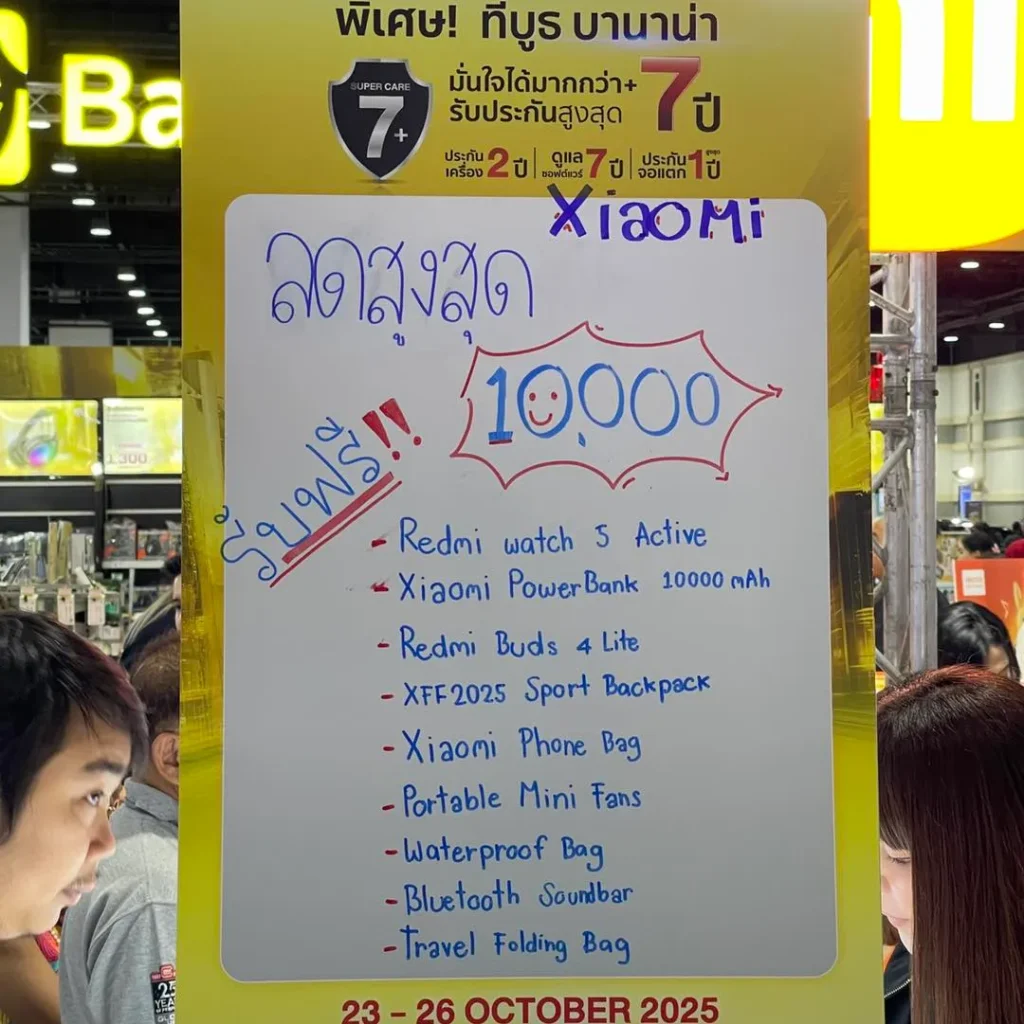 พิเศษ! ที่บูธ บานาน่า
SUPER CARE
7+
มั่นใจได้มากกว่า+
รับประกันสูงสุด 7 ปี
ประกันเครื่อง 2 ปี | ดูแลซอฟต์แวร์ 7 ปี | ประกันจอแตก สูงสุด 1 ปี
Ba
XiaoMi
ลดสูงสุด
10,000
รับฟรี!!
- Redmi watch 5 Active
- Xiaomi PowerBank 10000 mAh
- Redmi Buds 4 Lite
- XFF2025 Sport Backpack
- Xiaomi Phone Bag
- Portable Mini Fans
- Waterproof Bag
- Bluetooth Soundbar
- Travel Folding Bag
23 – 26 OCTOBER 2025